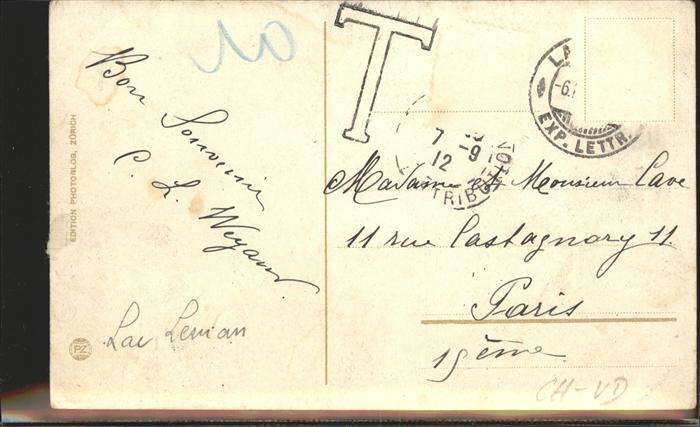 EDITION PHOTOGLOB, ZÜRICH
PZ
10
Bon Souvenir
C. L. Weyant.
Lac Leman
T
LA
-6.
EXP. LETTR.
7
12 9
TRIB
Madame et Monsieur Cave
11 rue Castagnary 11.
Paris
15ème
CH-VD